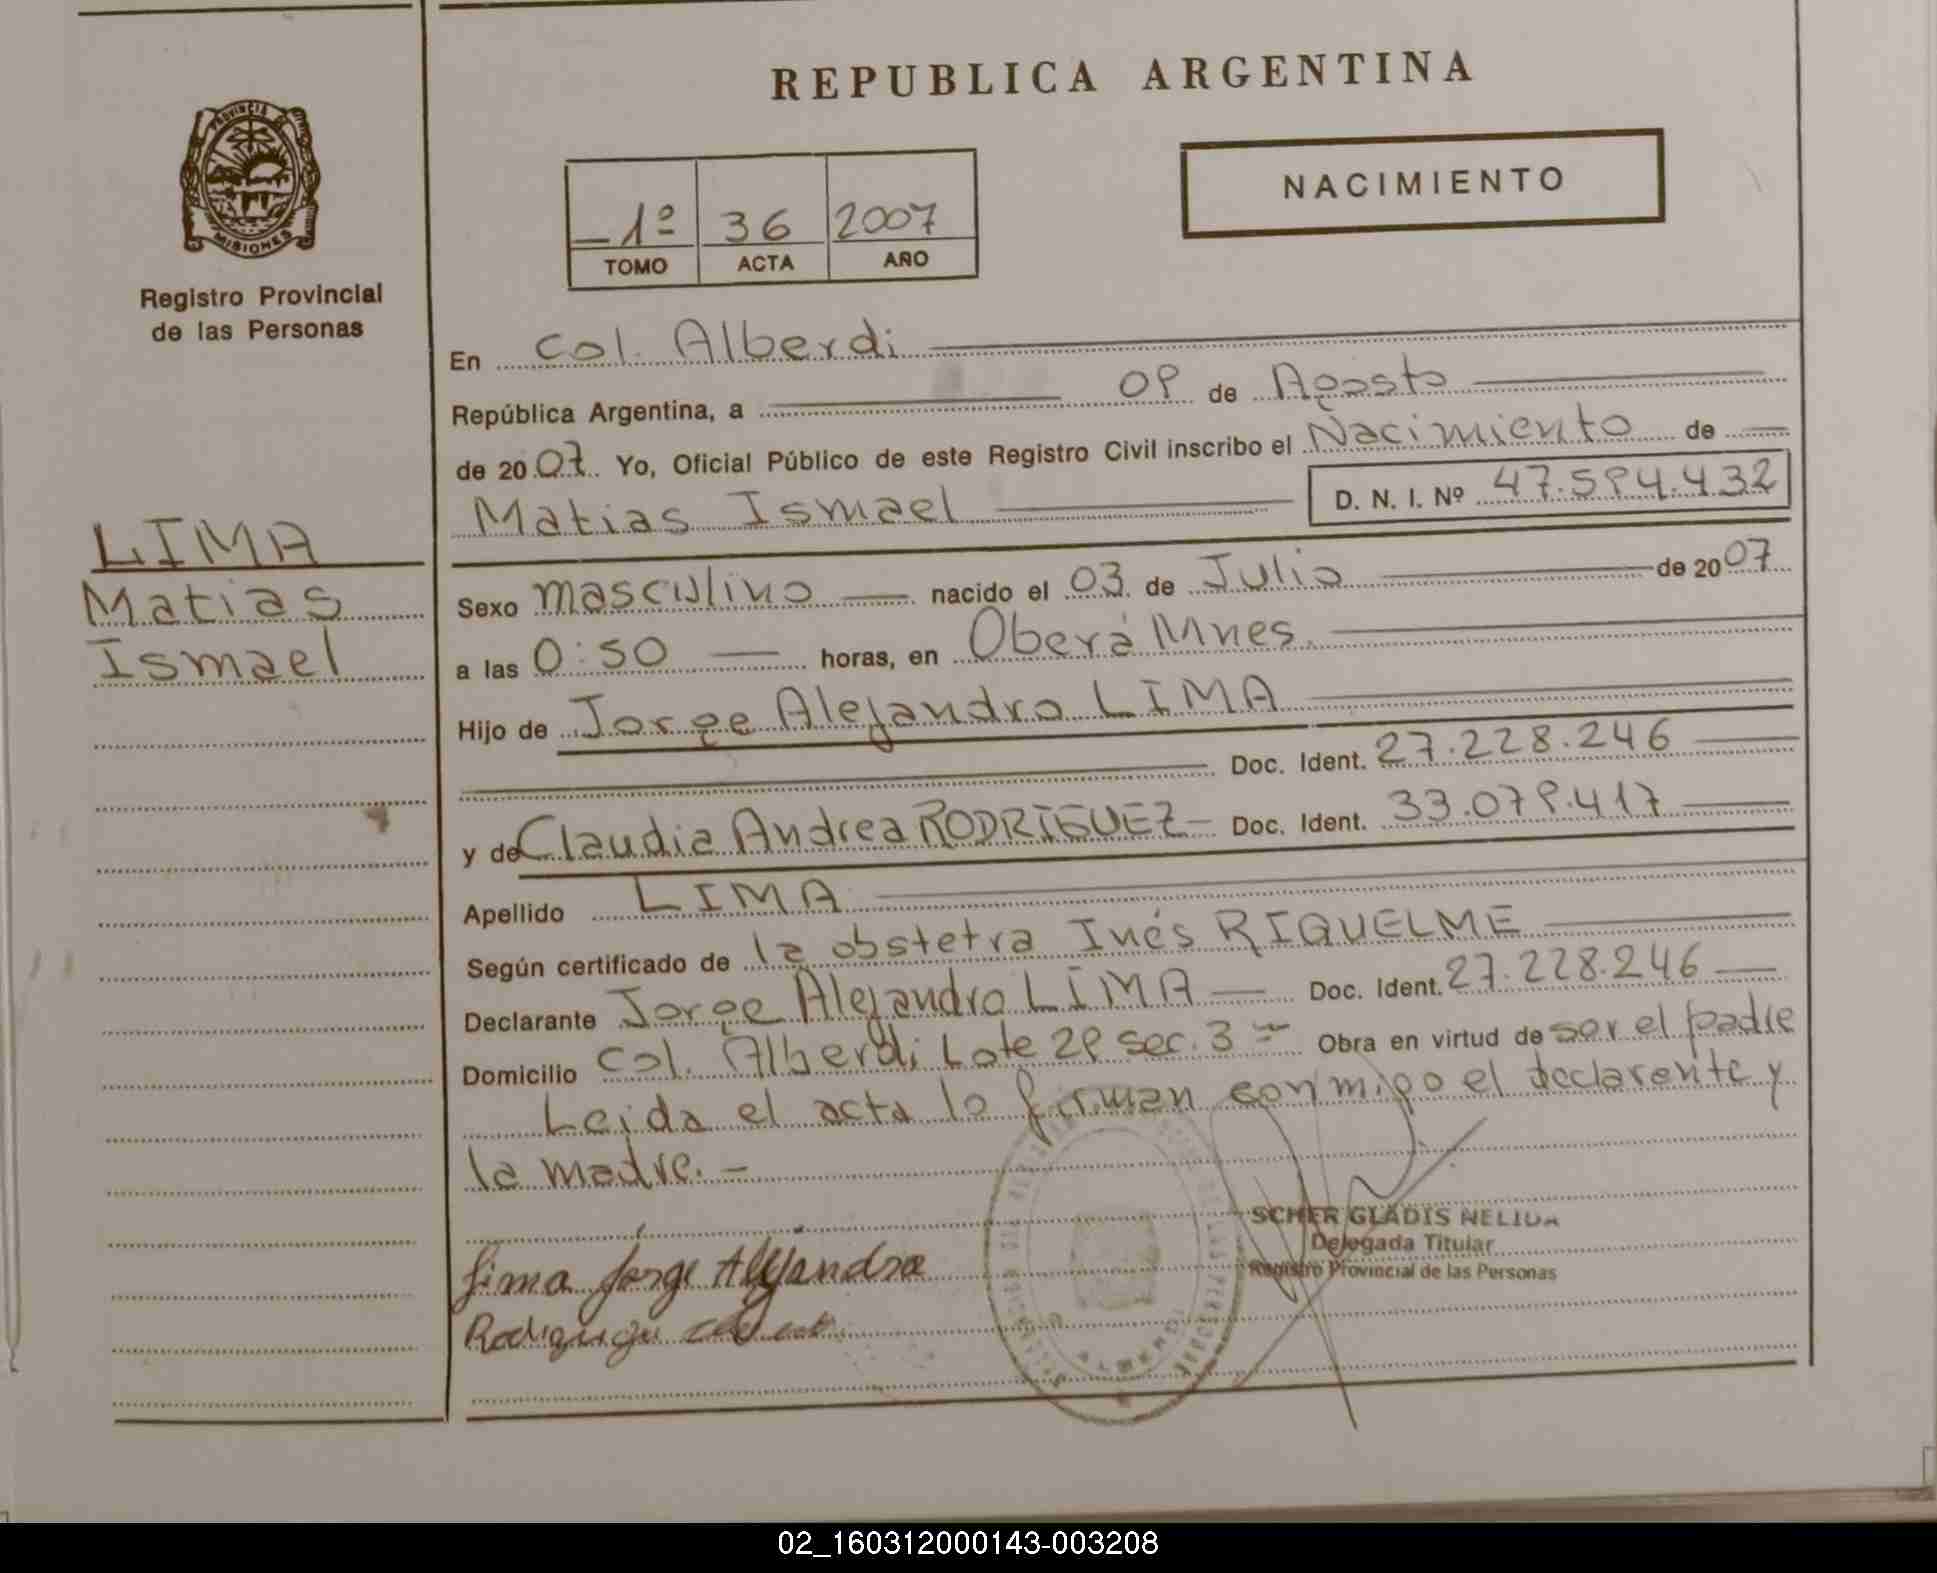 REPUBLICA ARGENTINA
PROVINCIA DE
MISIONES
Registro Provincial
de las Personas
1º 36 2007
TOMO ACTA AÑO
NACIMIENTO
En Col. Alberdi
República Argentina, a 09 de Agosto
de 2007 Yo, Oficial Público de este Registro Civil inscribo el Nacimiento de
Matias Ismael D. N. I. Nº 47.594.432
LIMA
Matias
Ismael
Sexo masculino nacido el 03 de Julio de 2007
a las 0:50 horas, en Oberá Mnes.
Hijo de Jorge Alejandro LIMA
Doc. Ident. 27.228.246
y de Claudia Andrea RODRIGUEZ Doc. Ident. 33.079.417
Apellido LIMA
Según certificado de la obstetra Inés RIQUELME
Declarante Jorge Alejandro LIMA Doc. Ident. 27.228.246
Domicilio Col. Alberdi Lote 29 sec. 3 Obra en virtud de ser el padre
Leida el acta lo firman conmigo el declarente y
la madre. -
SCHER GLADIS NELIDA
Delegada Titular
Registro Provincial de las Personas
Lima Jorge Alejandro
02_160312000143-003208